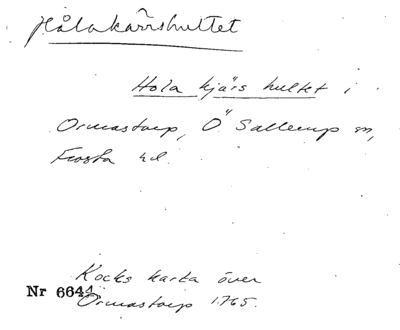 Hålakärrshultet
Hola kjärs hultet i
Ormastorp, Ö Sallerup sn,
Frosta hd.
Kocks karta över
Nr 6644
Ormastorp 1765.